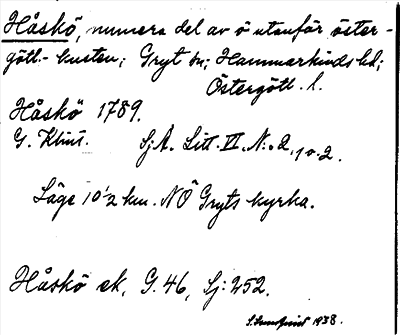 Håskö, numera del av ö utanför öster-
götl.- kusten; Gryt sn; Hammarkinds hd;
Östergötl. l.
Håskö 1789.
G. Klint. Sj.A. Litt. VI. N:o 2. 1 o. 2.
Läge 10 1/2 km. NÖ Gryts kyrka.
Håskö ek, G. 46, Sj: 252.
S. Sundqvist 1938.